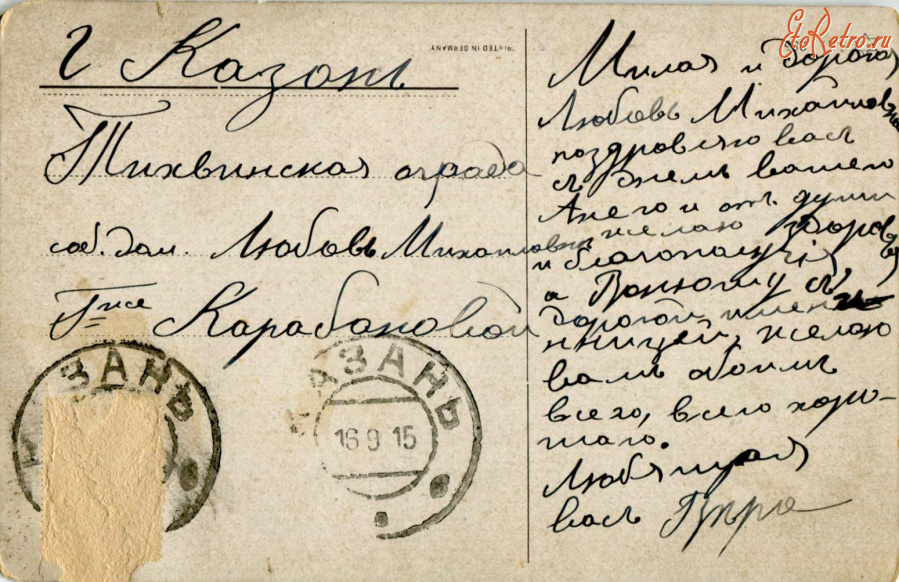 EtoRetro.ru
PRINTED IN GERMANY
г Казань
Тихвинская ограда
соб. дом. Любовь Михаиловна
Г-же Карабановой
КАЗАНЬ
КАЗАНЬ
16 9 15
Милая и Дорогая
Любовь Михаиловна
поздровляю васъ
съ днемъ вашего
Анело и от. души
желаю здоровья
и благополучія
а съ
дорогой имен
нницей, желаю
вамъ обоимъ
всего, всего хоро-
шаго.
Любящая
васъ Вѣра